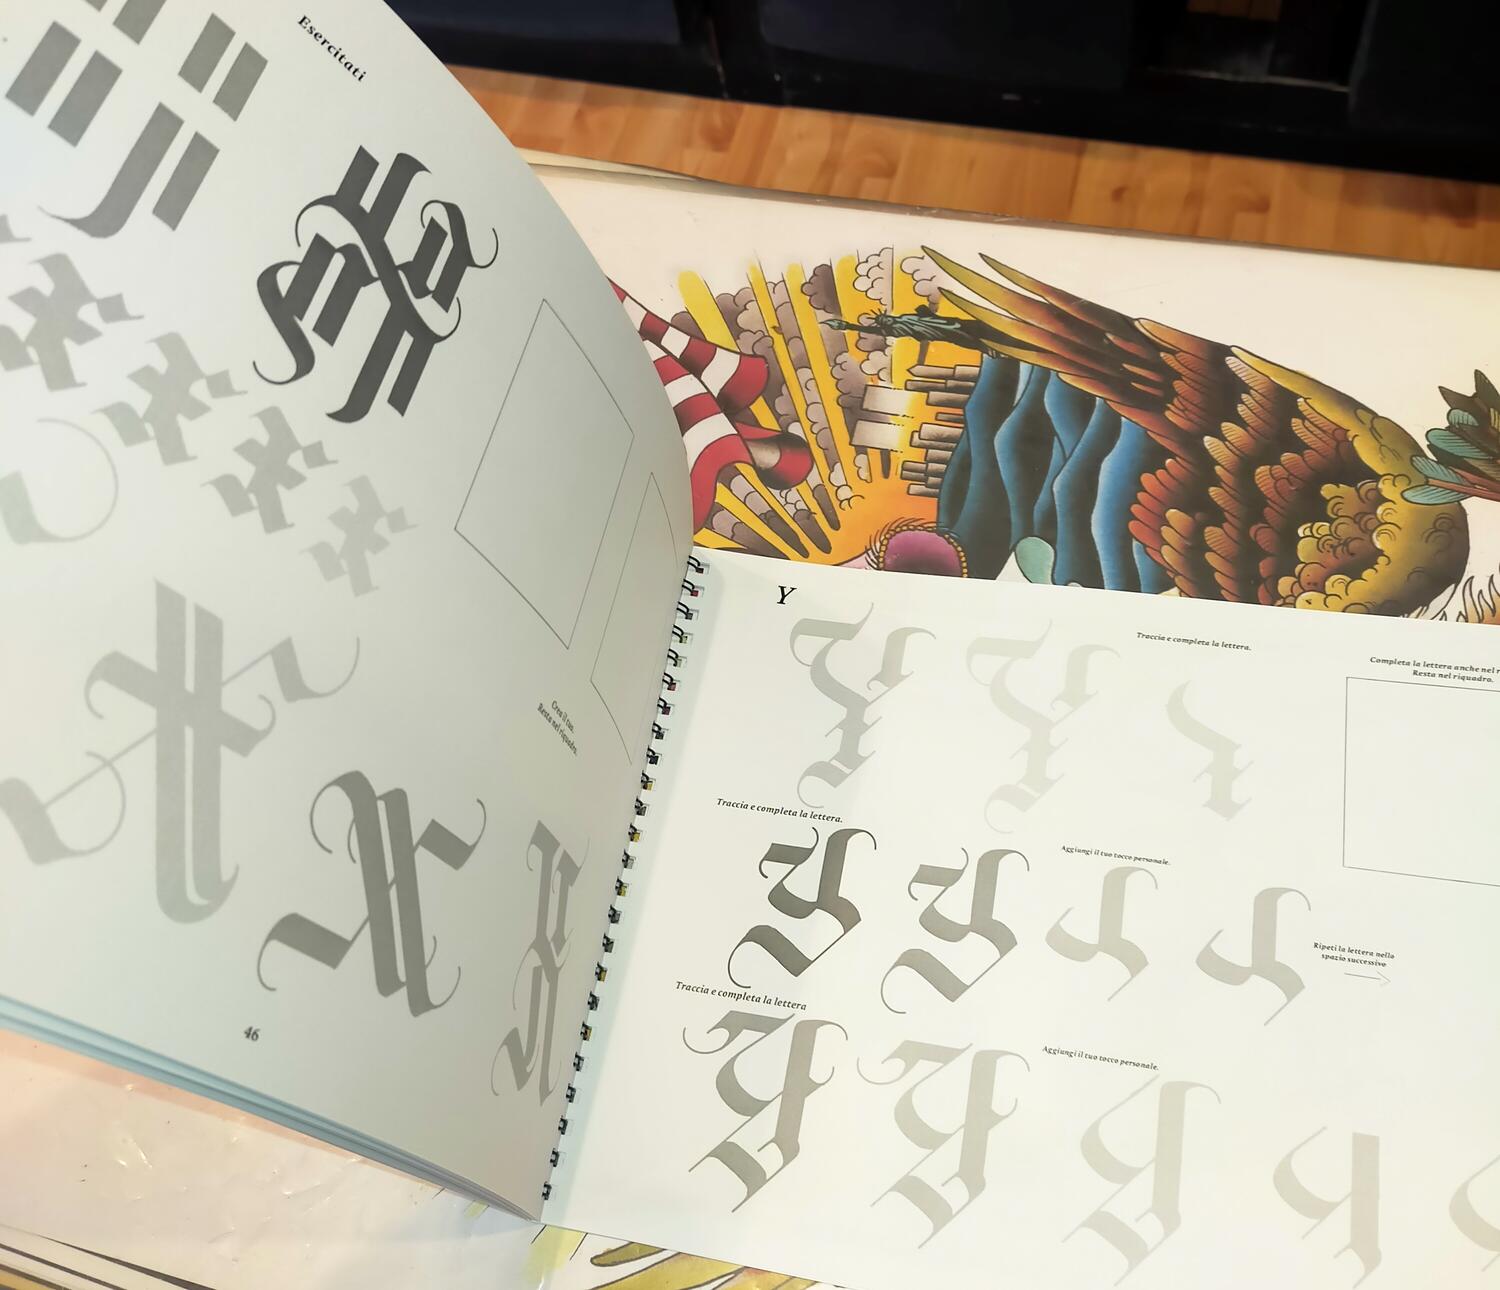 Esercitati
Crea il tuo.
Resta nel riquadro.
46
Y
Traccia e completa la lettera.
Completa la lettera anche nel
Resta nel riquadro.
Traccia e completa la lettera.
Aggiungi il tuo tocco personale.
Ripeti la lettera nello
spazio successivo
Traccia e completa la lettera
Aggiungi il tuo tocco personale.